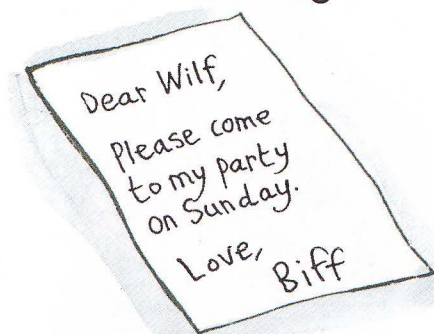 Dear Wilf,
Please come
to my party
on Sunday.
Love,
Biff